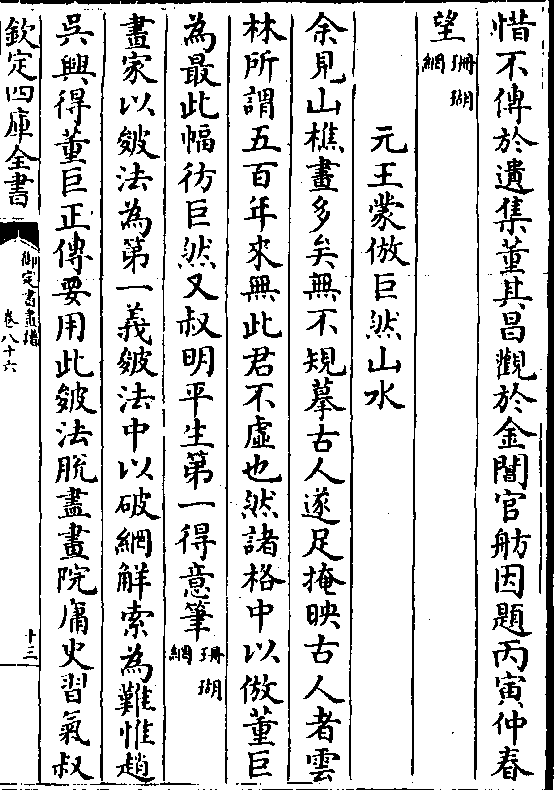 惜不傳於遺集董其昌觀於金閶官舫因題丙寅仲春
望珊瑚網
元王蒙倣巨然山水
余見山樵畫多矣無不規摹古人遂足掩映古人者雲
林所謂五百年來無此君不虛也然諸格中以倣董巨
為最此幅彷巨然又叔明平生第一得意筆珊瑚網
畫家以皴法為第一義皴法中以破網解索為難惟趙
吳興得董巨正傳要用此皴法脫盡畫院庸史習氣叔
欽定四庫全書
御定書畫譜
卷八十六
十三